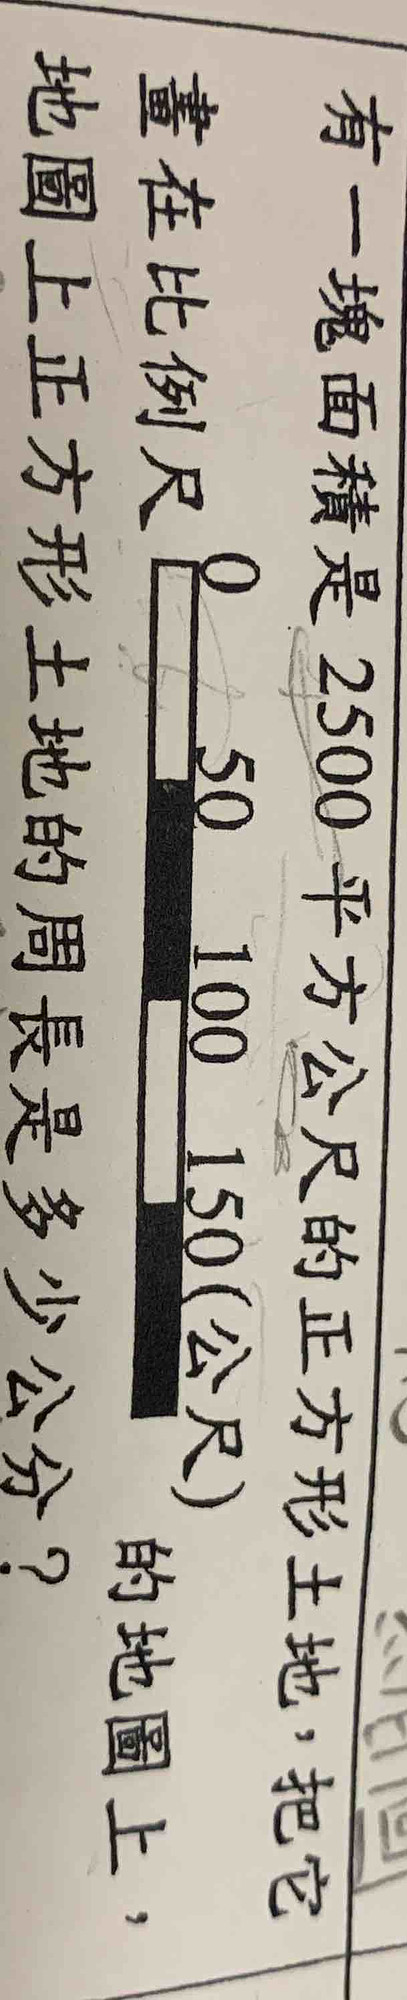 有一塊面積是2500平方公尺的正方形土地，把它
畫在比例尺 0 50 100 150(公尺) 的地圖上，
地圖上正方形土地的周長是多少公分？